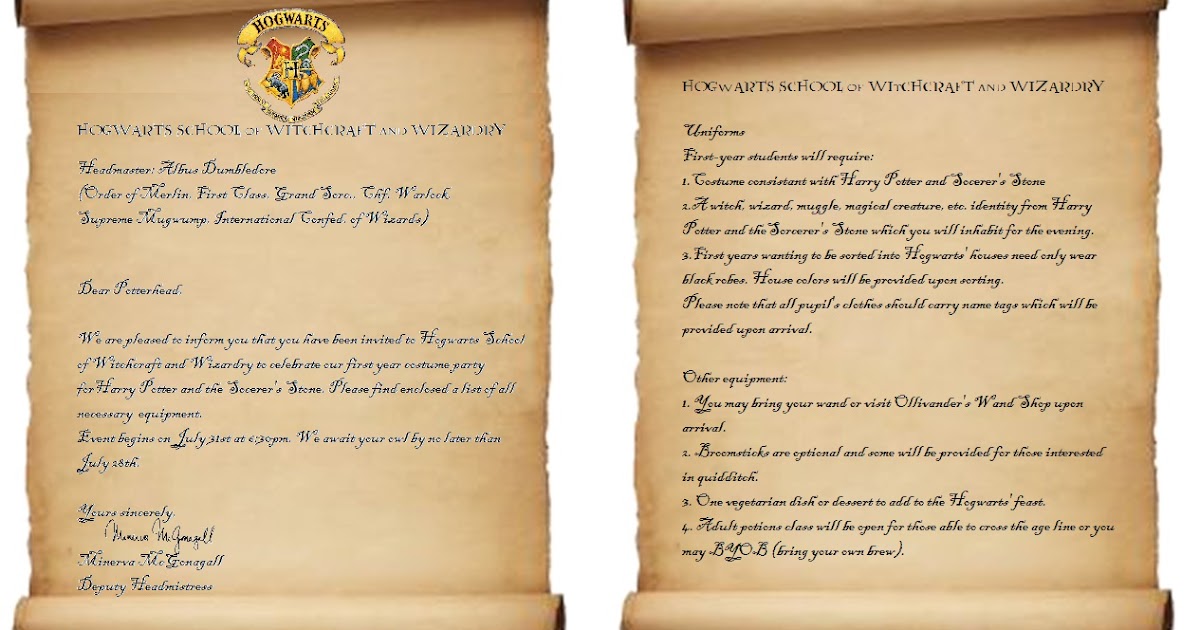 HOGWARTS
HOGWARTS SCHOOL OF WITCHCRAFT AND WIZARDRY
Headmaster: Albus Dumbledore
(Order of Merlin, First Class, Grand Sorc., Chf. Warlock,
Supreme Mugwump, International Confed. of Wizards)
Dear Potterhead,
We are pleased to inform you that you have been invited to Hogwarts School
of Witchcraft and Wizardry to celebrate our first year costume party
for Harry Potter and the Socerer's Stone. Please find enclosed a list of all
necessary equipment.
Event begins on July 31st at 6:30pm. We await your owl by no later than
July 28th.
Yours sincerely,
Minerva McGonagall
Minerva McGonagall
Deputy Headmistress
HOGWARTS SCHOOL OF WITCHCRAFT AND WIZARDRY
Uniforms
First-year students will require:
1. Costume consistant with Harry Potter and Socerer's Stone
2. A witch, wizard, muggle, magical creature, etc. identity from Harry
Potter and the Sorcerer's Stone which you will inhabit for the evening.
3. First years wanting to be sorted into Hogwarts' houses need only wear
black robes. House colors will be provided upon sorting.
Please note that all pupil's clothes should carry name tags which will be
provided upon arrival.
Other equipment:
1. You may bring your wand or visit Ollivander's Wand Shop upon
arrival.
2. Broomsticks are optional and some will be provided for those interested
in quidditch.
3. One vegetarian dish or dessert to add to the Hogwarts' feast.
4. Adult potions class will be open for those able to cross the age line or you
may BYOB (bring your own brew).